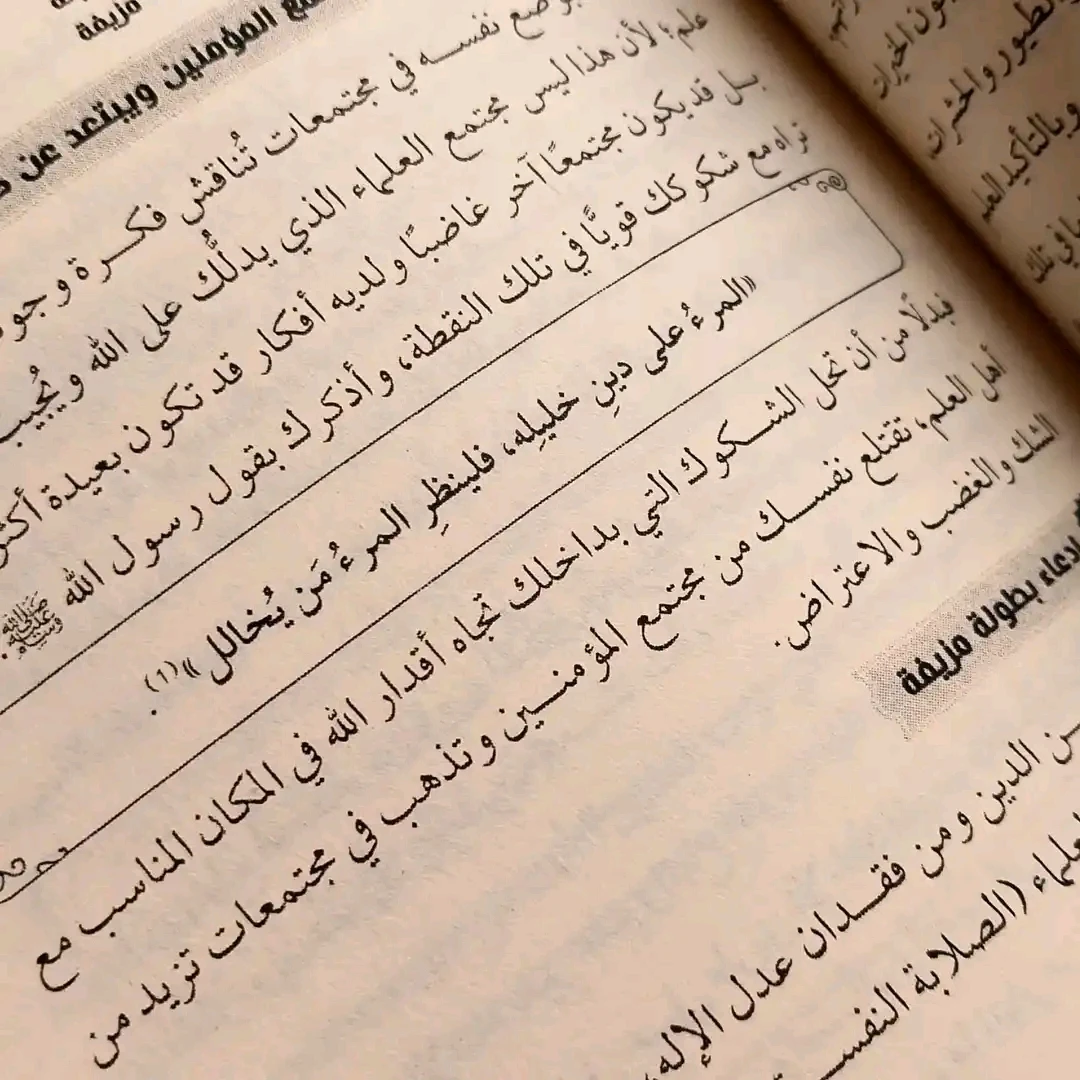 مزيفة
المؤمنين ويبتعد عن
وضع نفسه في مجتمعات تُناقش فكرة
علم؛ لأن هذا ليس مجتمع العلماء الذي يدلُّك على الله ويُجيب
بل قد يكون مجتمعًا آخر غاضبًا ولديه أفكار قد تكون بعيدة أكثر
تراه مع شكوكك قويًّا في تلك النقطة، وأذكرك بقول رسول الله ﷺ:
«المرءُ على دينِ خليلِه، فلينظرِ المرءُ مَن يُخالل»(١).
فبدلًا من أن تحل الشكوك التي بداخلك تجاه أقدار الله في المكان المناسب مع
أهل العلم، تقتلع نفسك من مجتمع المؤمنين وتذهب في مجتمعات تزيد من
الشك والغضب والاعتراض.
ادعاء بطولة مزيفة
الدين ومن فقدان عدل الإله
(الصلابة
الخيرات
والطيور والحشرات
وبالتأكيد
في تلك